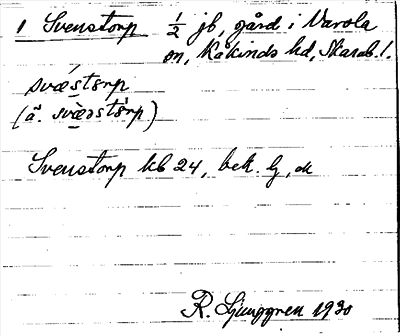 1 Svenstorp 1/2 jb, gård i Varola
sn, Kåkinds hd, Skarab. l.
svæstɵrp
(ä. svæ̀ɔstɵ́rp)
Svenstorp kb 24, bek. G, ok
R. Ljunggren 1930